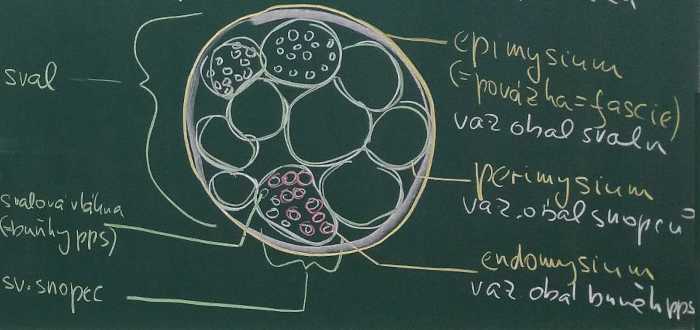 sval
svalová vlákna
(=buňky pps)
sv. snopec
epimysium
(=povázka=fascie)
vaz obal svalu
perimysium
vaz. obal snopcu=
endomysium
vaz obal buněk pps